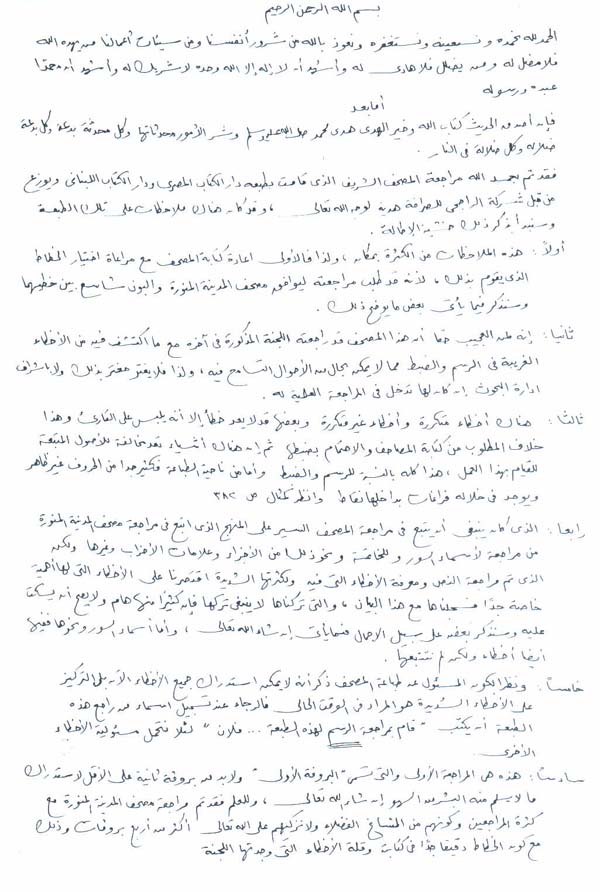 بسم الله الرحمن الرحيم
الحمد لله نحمده ونستعينه ونستغفره ونعوذ بالله من شرور أنفسنا ومن سيئات أعمالنا من يهده الله
فلا مضل له ومن يضلل فلا هادى له وأشهد أن لا إله إلا الله وحده لا شريك له وأشهد أن محمدا
عبده ورسوله
أما بعد
فإن أصدق الحديث كتاب الله وخير الهدى هدى محمد صلى الله عليه وسلم وشر الأمور محدثاتها وكل محدثة بدعة وكل بدعة
ضلالة وكل ضلالة فى النار .
فقد تم بحمد الله مراجعة المصحف الشريف الذى قامت بطبعه دار الكتاب المصرى ودار الكتاب اللبنانى ويوزع
من قبل شركة الراجحى للصرافة هدية لوجه الله تعالى ، وقد كان هناك ملاحظات على تلك الطبعة
وسنبدأ بذكر ذلك خشية الإطالة .
أولاً : هذه الملاحظات من الكثرة بمكان ، ولذا فالأولى اعادة كتابة المصحف مع مراعاة اختيار الخطاط
الذى يقوم بذلك ، لأنه قد طلب مراجعته ليوافق مصحف المدينة المنورة والبون شاسع بين خطيهما
وسنذكر فيما يأتى بعض ما يوضح ذلك .
ثانيا : إنه لمن العجيب حقا أن هذا المصحف قد راجعته اللجنة المذكورة فى آخره مع ما اكتشف فيه من الأخطاء
الغريبة فى الرسم والضبط مما لا يمكن بحال من الأحوال التسامح فيه ، ولذا فلا يغتر مغتر بذلك ولا باشراف
ادارة البحوث إن كان لها تدخل فى المراجعة العلمية له .
ثالثا : هناك أخطاء متكررة وأخطاء غير متكررة وبعضها قد لا يعد خطأ إلا أنه يلبس على القارئ وهذا
خلاف المطلوب من كتابة المصاحف والاهتمام بضبطها ثم إن هناك أشياء تعد مخالفة للأصول المتبعة
للقيام بهذا العمل ، هذا كله بالنسبة للرسم والضبط وأما من ناحية الطباعة فكثير جدا من الحروف غير ظاهر
ويوجد فى خلاله فراغات بداخلها نقاط وانظر كمثال ص ٣٨٢
رابعا : الذى كان ينبغى أن يتبع فى مراجعة المصحف السير على المنهج الذى اتبع فى مراجعة مصحف المدينة المنورة
من مراجعة لأسماء السور وللخاتمة ونحو ذلك من الأجزاء وعلامات الأحزاب وغيرها ولكن
الذى تم مراجعة النص ومعرفة الأخطاء التى فيه ولكثرتها الشديدة اقتصرنا على الأخطاء التى لها أهمية
خاصة جدا فسجلناها مع هذا البيان ، والتى تركناها لا ينبغى تركها فإن كثيرا منها هام ولا يصح أن يسكت
عليه وسنذكر بعضه على سبيل الاجمال فيما يأتى إن شاء الله تعالى ، وأما أسماء السور ونحوها ففيها
أيضا أخطاء ولكن لم نتتبعها .
خامسا : ونظرا لكون المسئول عن طباعة المصحف ذكر أنه لا يمكن استدراك جميع الأخطاء الآن بل التركيز
على الأخطاء الشديدة هو المراد فى الوقت الحالى فالرجاء عند تسجيل اسماء من راجع هذه
الطبعة أن يكتب " قام بمراجعة الرسم لهذه الطبعة ... فلان " لئلا نتحمل مسئولية الأخطاء
الأخرى .
سادسا : هذه هى المراجعة الأولى والتى تسمى " البروفة الأولى " ولابد من بروفة ثانية على الأقل لاستدراك
ما لا يسلم منه البشر من السهو إن شاء الله تعالى ، وللعلم فقد تم مراجعة مصحف المدينة المنورة مع
كثرة المراجعين وكونهم من المشايخ الفضلاء ولا نزكيهم على الله تعالى أكثر من أربع بروفات وذلك
مع كون الخطاط دقيقا جدا فى كتابته وقلة الأخطاء التى وجدتها اللجنة